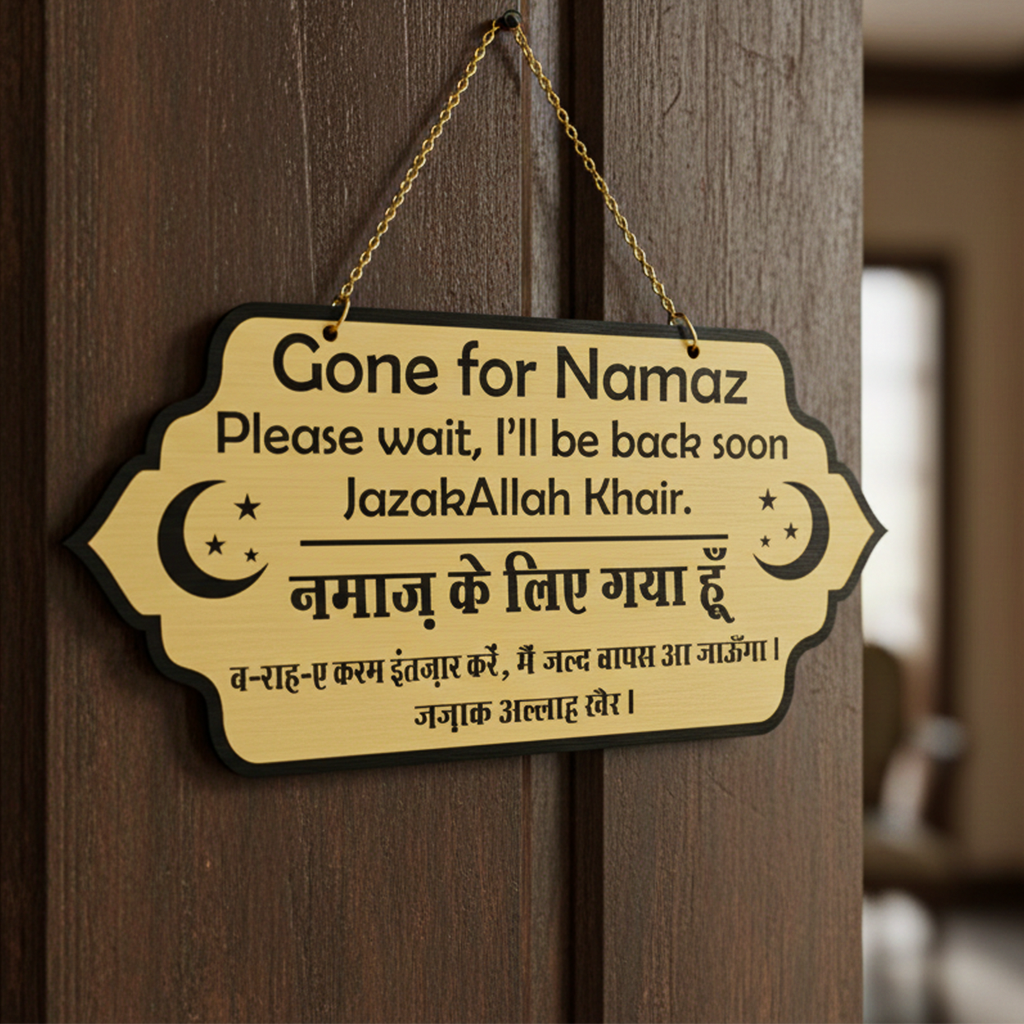 Gone for Namaz
Please wait, I'll be back soon
JazakAllah Khair.
नमाज़ के लिए गया हूँ
ब-राह-ए करम इंतज़ार करें, मैं जल्द वापस आ जाऊँगा।
जज़ाक अल्लाह खैर।